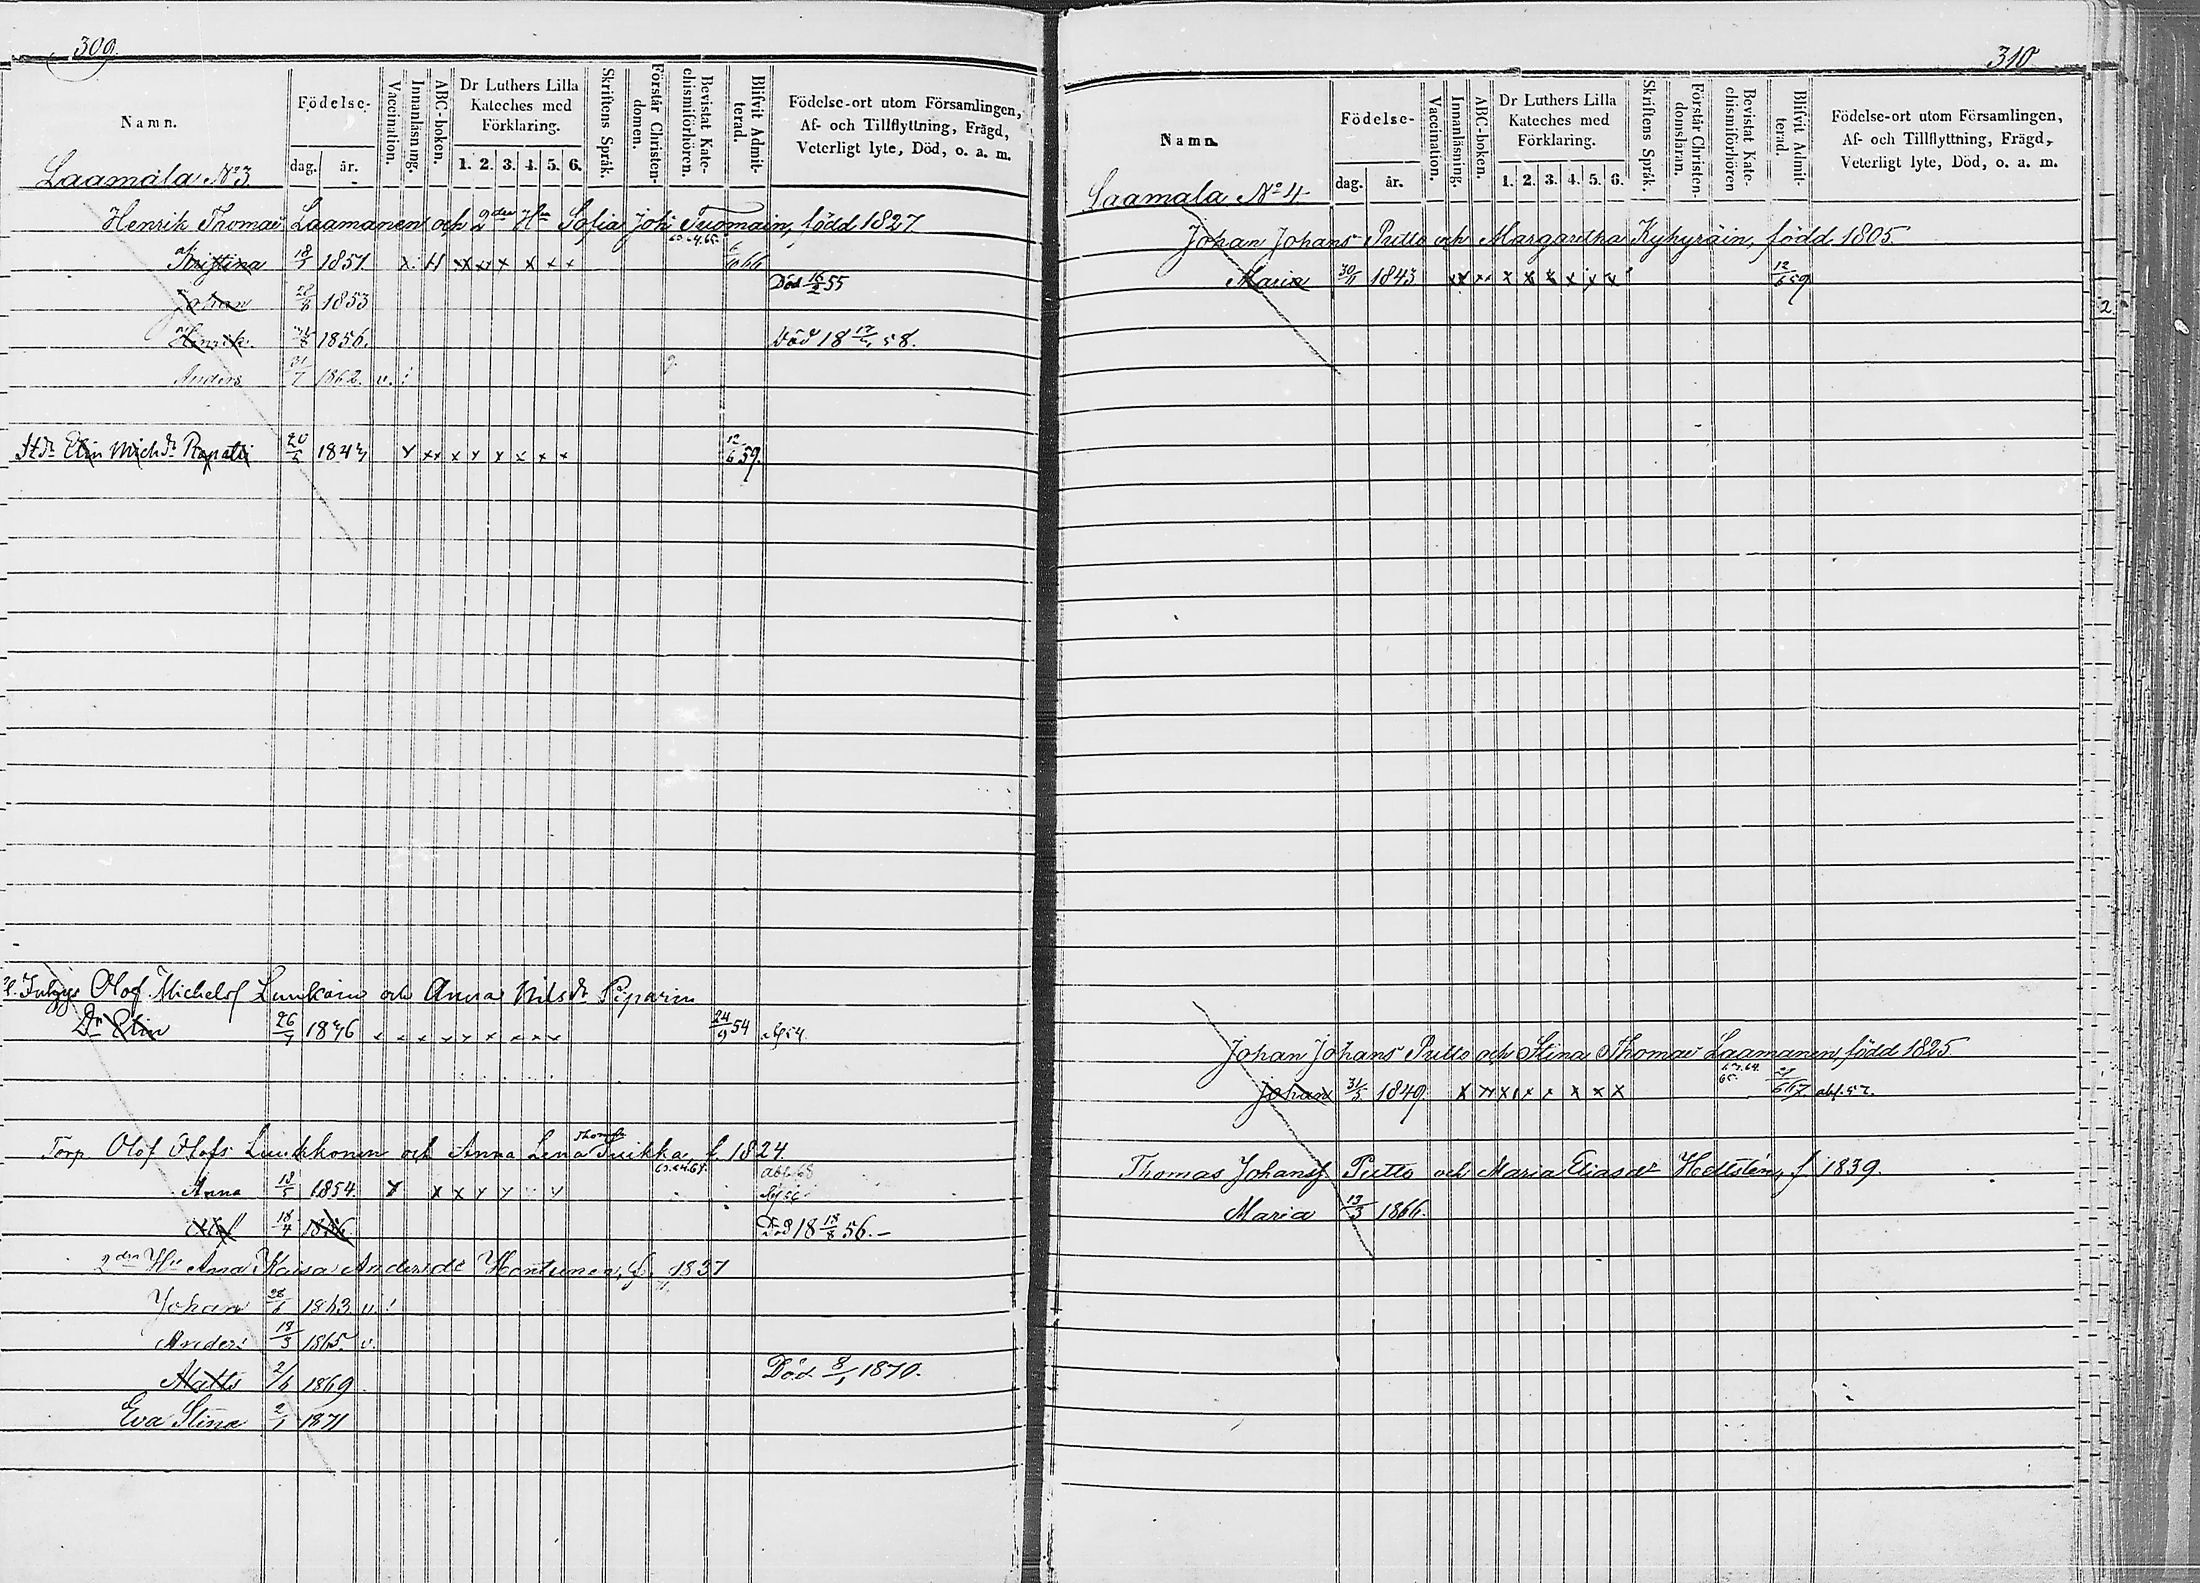 309.
Namn.
Födelse-
dag. år.
Vaccination.
Innanläsning.
ABC-boken.
Dr Luthers Lilla
Kateches med
Förklaring.
1. 2. 3. 4. 5. 6.
Skriftens Språk.
Förstår Christen-
domen.
Bevistat Kate-
chismiförhören.
Blifvit Admit-
terad.
Födelse-ort utom Församlingen,
Af- och Tillflyttning, Frägd,
Veterligt lyte, Död, o. a. m.
Laamala No 3.
Henrik Thomas Laamanen och 2dra Hu Sofia Joh Tuomain, född 1827
63.64.65.
Kristina 18/ 1851 x x x x x x x 66
Johan 1853 Död 16/2 55
Henrik 1856. Död 18 58.
Anders 1862. v.
Elin Michdr Rapatti 20/ 184 x xx x x x x x x 12/6 59.
Olof Michelsf och Anna Nilsdr Piparin
Dr Elin 26/ 1836 x x x x x x x x x 24/9 54
Torp Olof Olofs Luukkonen och Anna Lena Thomdr Tuikka, f. 1824.
63.64.65.
abf. 68
Anna 18/5 1854. x x x x x x
18/4 1856. Död 18 18/8 56.
2dra Hu Anna Kaisa Andersdr Hontunen, f. 1837
Johan 28/6 1863. v.
Anders 18/3 1865. v.
Matts 2/6 1869. Död 8/1 1870.
Eva Stina 2/1 1871
310
Namn.
Födelse-
dag. år.
Vaccination.
Innanläsning.
ABC-boken.
Dr Luthers Lilla
Kateches med
Förklaring.
1. 2. 3. 4. 5. 6.
Skriftens Språk.
Förstår Christen-
domslaran.
Bevistat Kate-
chismiförhören
Blifvit Admit-
terad.
Födelse-ort utom Församlingen,
Af- och Tillflyttning, Frägd,
Veterligt lyte, Död, o. a. m.
Laamala No 4
Johan Johans Putto och Margaretha Kyhyräin, född 1805.
Maria 30/11 1843 xx xx x x x x x x 12/6 59
Johan Johans Putto och Stina Thomas Laamanen, född 1825
63.64.
65.
Johan 31/3 1849. x x x x x x x x 6 67. abf. 57.
Thomas Johansf Putto och Maria Eliasdr Hellstén, f. 1839.
Maria 13/3 1866.
2